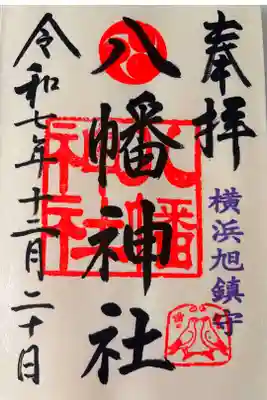 奉拝
横浜旭鎮守
八幡神社
八幡神社
令和七年十二月二十日